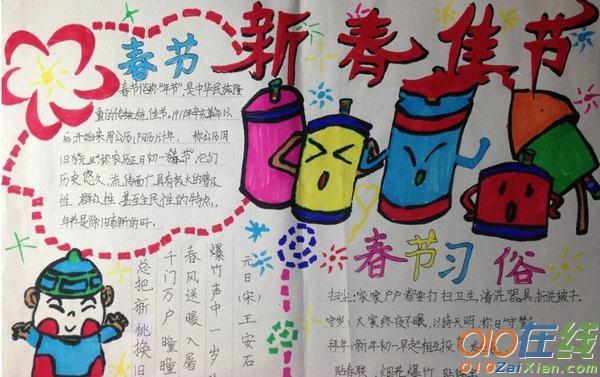 新春佳节
春节
春节俗称"年节",是中华民族隆
重的传统佳节。1911年辛亥革命以
后开始采用公历(阳历)计年,称公历
称农历正月初一"春节",它们
历史悠久,流传面广具有较大的普及
性 群众性 甚至全民性的特点。
年节是除旧布新的
元日(宋)王安石
爆竹声中一岁
春风送暖入屠
千门万户曈曈
总把新桃换旧
春节习俗
扫尘:家家户户都要打扫卫生,清洗器具,拆洗被子。
守岁:大家终夜不眠,以待天明,称曰"守岁"。
拜年:新年初一早起相互
贴春联 烟花爆竹
010在线
010ZaiXian.Com